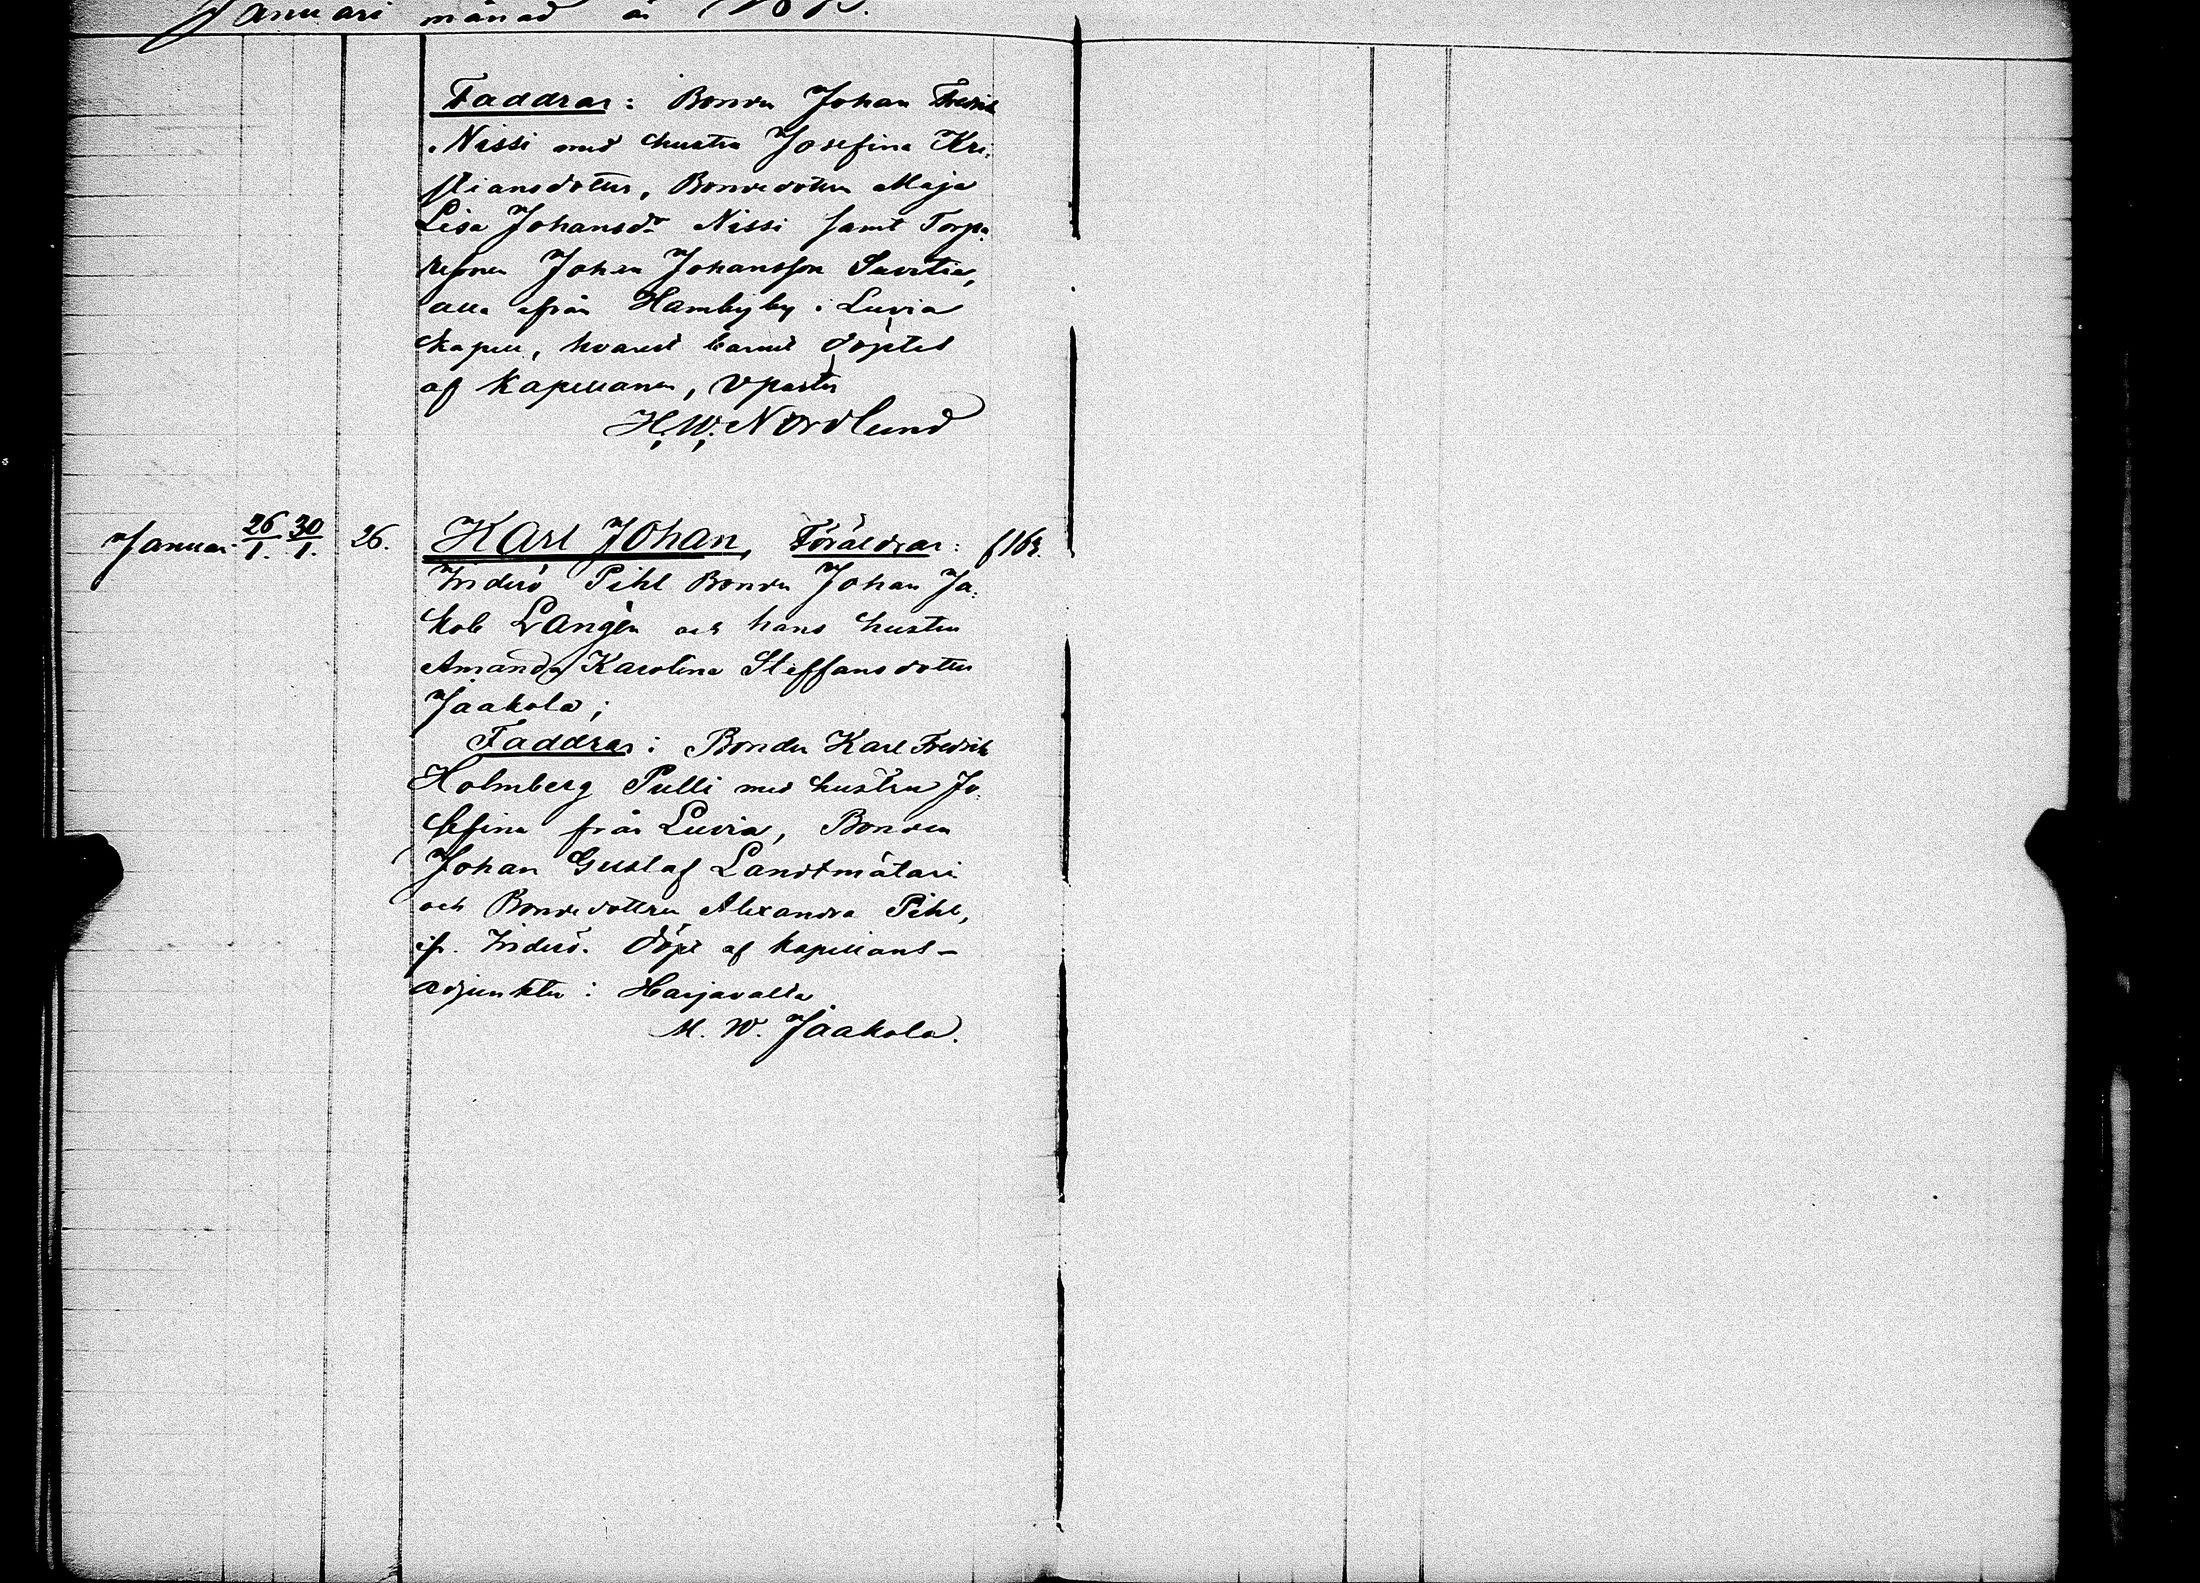 Januari månad år 187
Faddrar: Bonden Johan Fredrik
Nissi med hustru Josefina Kri-
stiansdotter, Bondedottern Maja
Lisa Johansdr Nissi samt Torpa-
resonen Johan Johansson
alla från Hamby by i Luvia
kapell, hvarest barnet döptes
af Kapellanen, Vpastor
H. W. Nordlund
Januari 26/1. 30/1. 26. Karl Johan, Föräldrar: f 163.
Inderö Pihl Bonden Johan Ja-
kob Langén och hans hustru
Amanda Karolina Steffansdotter
Jaakola;
Faddrar: Bonden Karl Fredrik
Holmberg Pulli med hustru Jo-
sefina från Luvia, Bonden
Johan Gustaf Landtmätari
och Bondedottren Alexandra Pihl,
fr. Inderö. Döpt af kapellans-
adjunkten i Harjavalta
M. W. Jaakola.